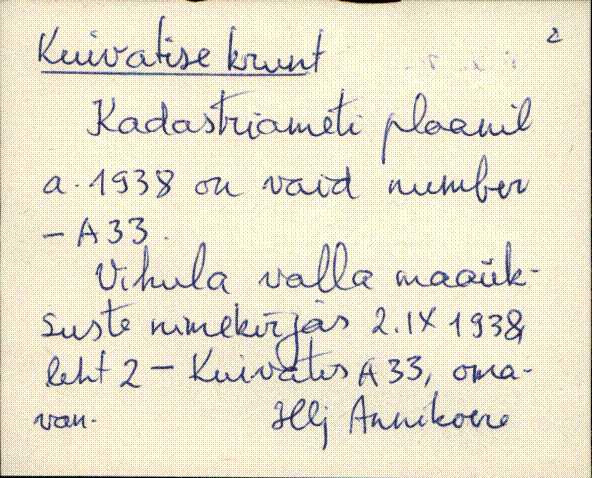 2
Kuivatise krunt
Kadastriameti plaanil
a. 1938 on vaid number
– A 33.
Vihula valla maaük-
suste nimekirjas 2.IX 1938,
leht 2 – Kuivatis A 33, oma-
van.